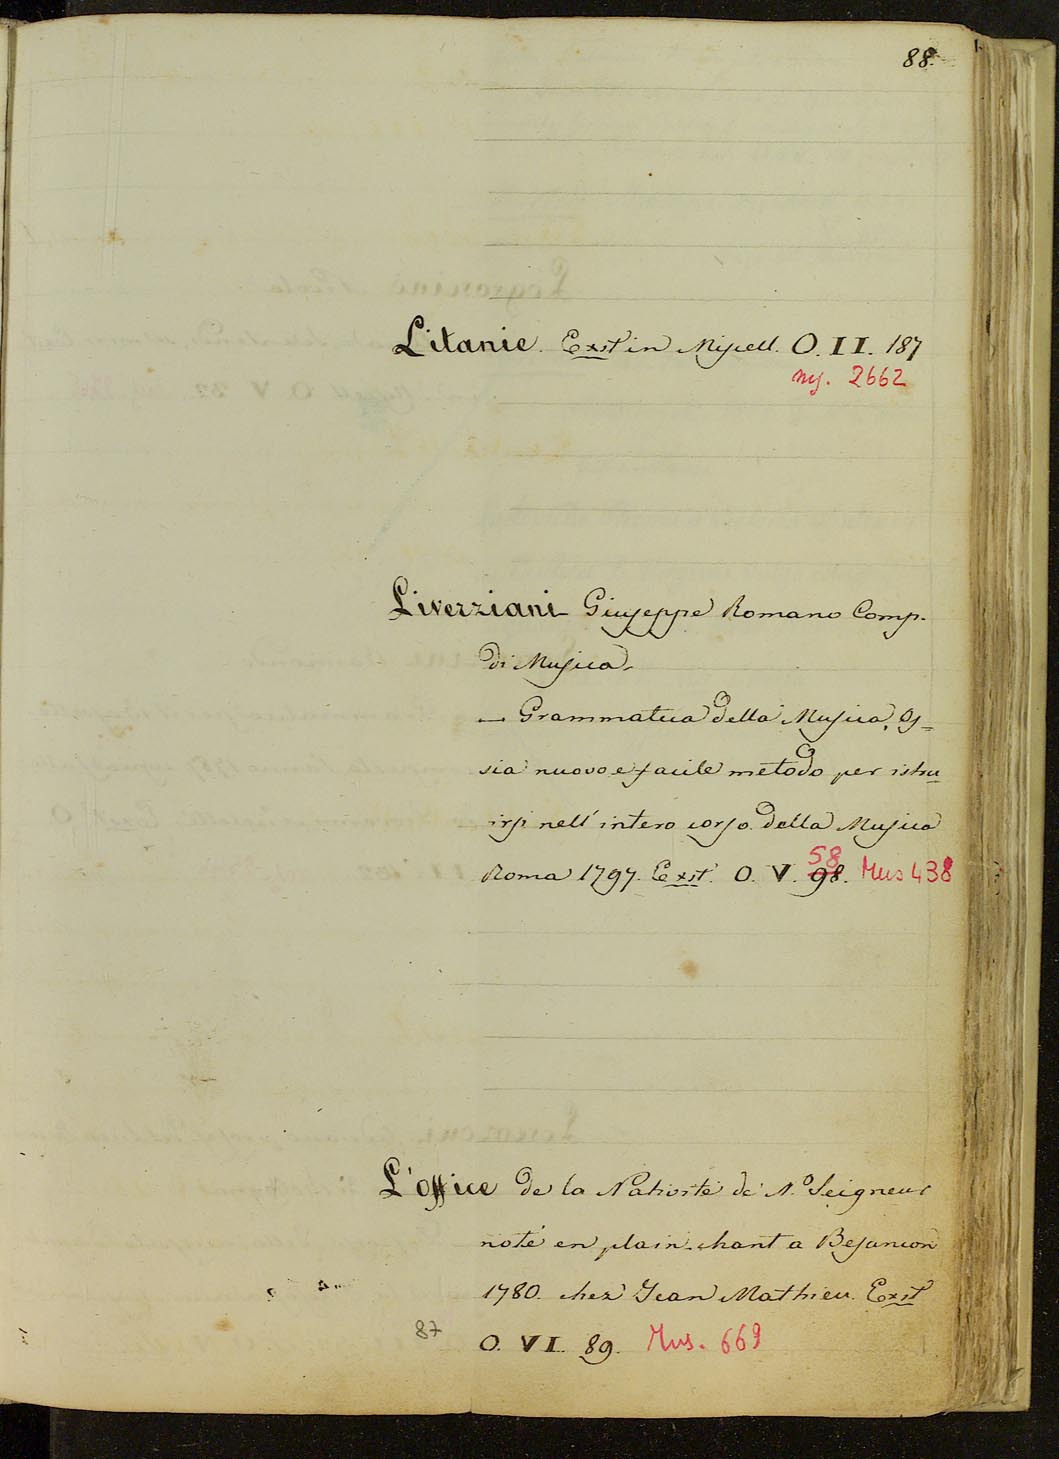 88.
Litanie. Exst in Miscell. O. II. 187
ms. 2662
Liverziani Giuseppe Romano Comp.
di Musica.
— Grammatica della Musica, os=
sia nuovo e facile metodo per istru
irsi nell' intero corso della Musica
58
Roma 1797. Exst. O. V. 98. Mus 438
L'office de la Nativité de N.º Seigneur
noté en plain-chant a Besancon
1780. chez Jean Mathieu. Exst
87 O. VI. 89. Mus. 669